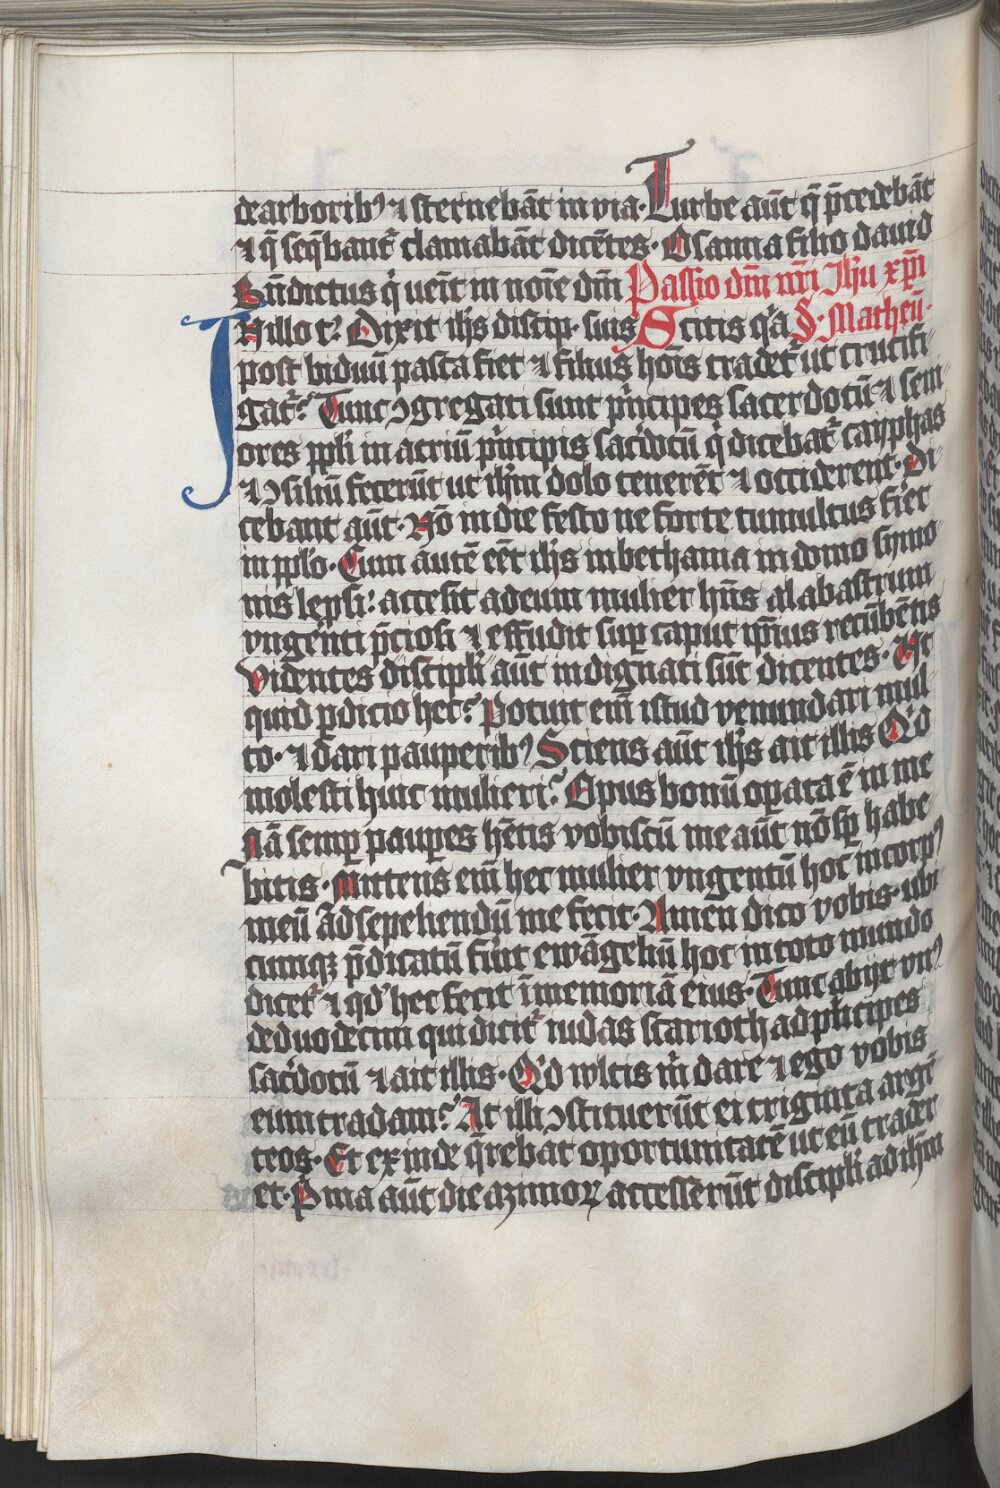 de arborib⁹ ⁊ sternebāt in via. Turbe aūt q̄ p̄cedebāt
⁊ q̄ seq̄bant᷑ clamabāt dicētes. Osanna filio dauid
Bn̄dictus q̇ ueīt in noīe dm̄ Passio dn̄i nr̄i Ihū xp̄i
N illo t̄ꝰ Dixit ih̄s discip. suis Scitis q̇a S. Matheū.
post biduū pasca fiet ⁊ filius hoīs tradet᷑ ut crucifi
gat᷑. Tunc ꝯgregati sunt pͥncipes sacerdotū ⁊ seni
ores pp̄li in atriū pͥncipis sac̄dotū q̇ dicebat᷑ cayphas
⁊ ꝯsiliū fecerūt ut ih̄m dolo tenerēt ⁊ occiderent. Di
cebant aūt. Nō in die festo ne forte tumultus fiet
in pp̄lo. Cum autē eēt ih̄s in bethania in domo symo
nis leprosi: accesit ad eum mulier hn̄s alabastrum
vngenti p̄ciosi ⁊ effudit sup̱ caput ip̄ius recūbētis
Videntes discipl̄i aūt indignati sūt dicentes. Vt
quid ꝑdicio hec? Potuit eīn istud venundari mul
to. ⁊ dari pauperib⁹ Sciens aūt ih̄s ait illis Qͥd
molesti huic mulieri? Opus bonū oꝑata ē in me
Nā semꝑ pauꝑes hētis vobiscū me aūt nō sꝑ habe
bitis. Mittens eīn hec mulier vngentū hoc in corp⁹
meū ad sepeliendū me fecit. Amen dico vobis. ubi
cumqꝫ p̄dicatū fūit ewāgeliū hoc in toto mundo
dicet᷑ ⁊ qd̾ hec fecit ī memoriā eius. Tunc abijt vn⁹
de duodecim qui dicit᷑ iudas scarioth ad pͥncipes
sac̄dotū ⁊ ait illis. Qͥd wltis m̄ dare ⁊ ego vobis
eum tradam? At illi ꝯstituerūt ei triginta argē
teos. Et exinde q̄rebat oportunitatē ut eū trader
et. Pͥma aūt die azimoꝝ accesserūt discipl̄i ad ih̄m